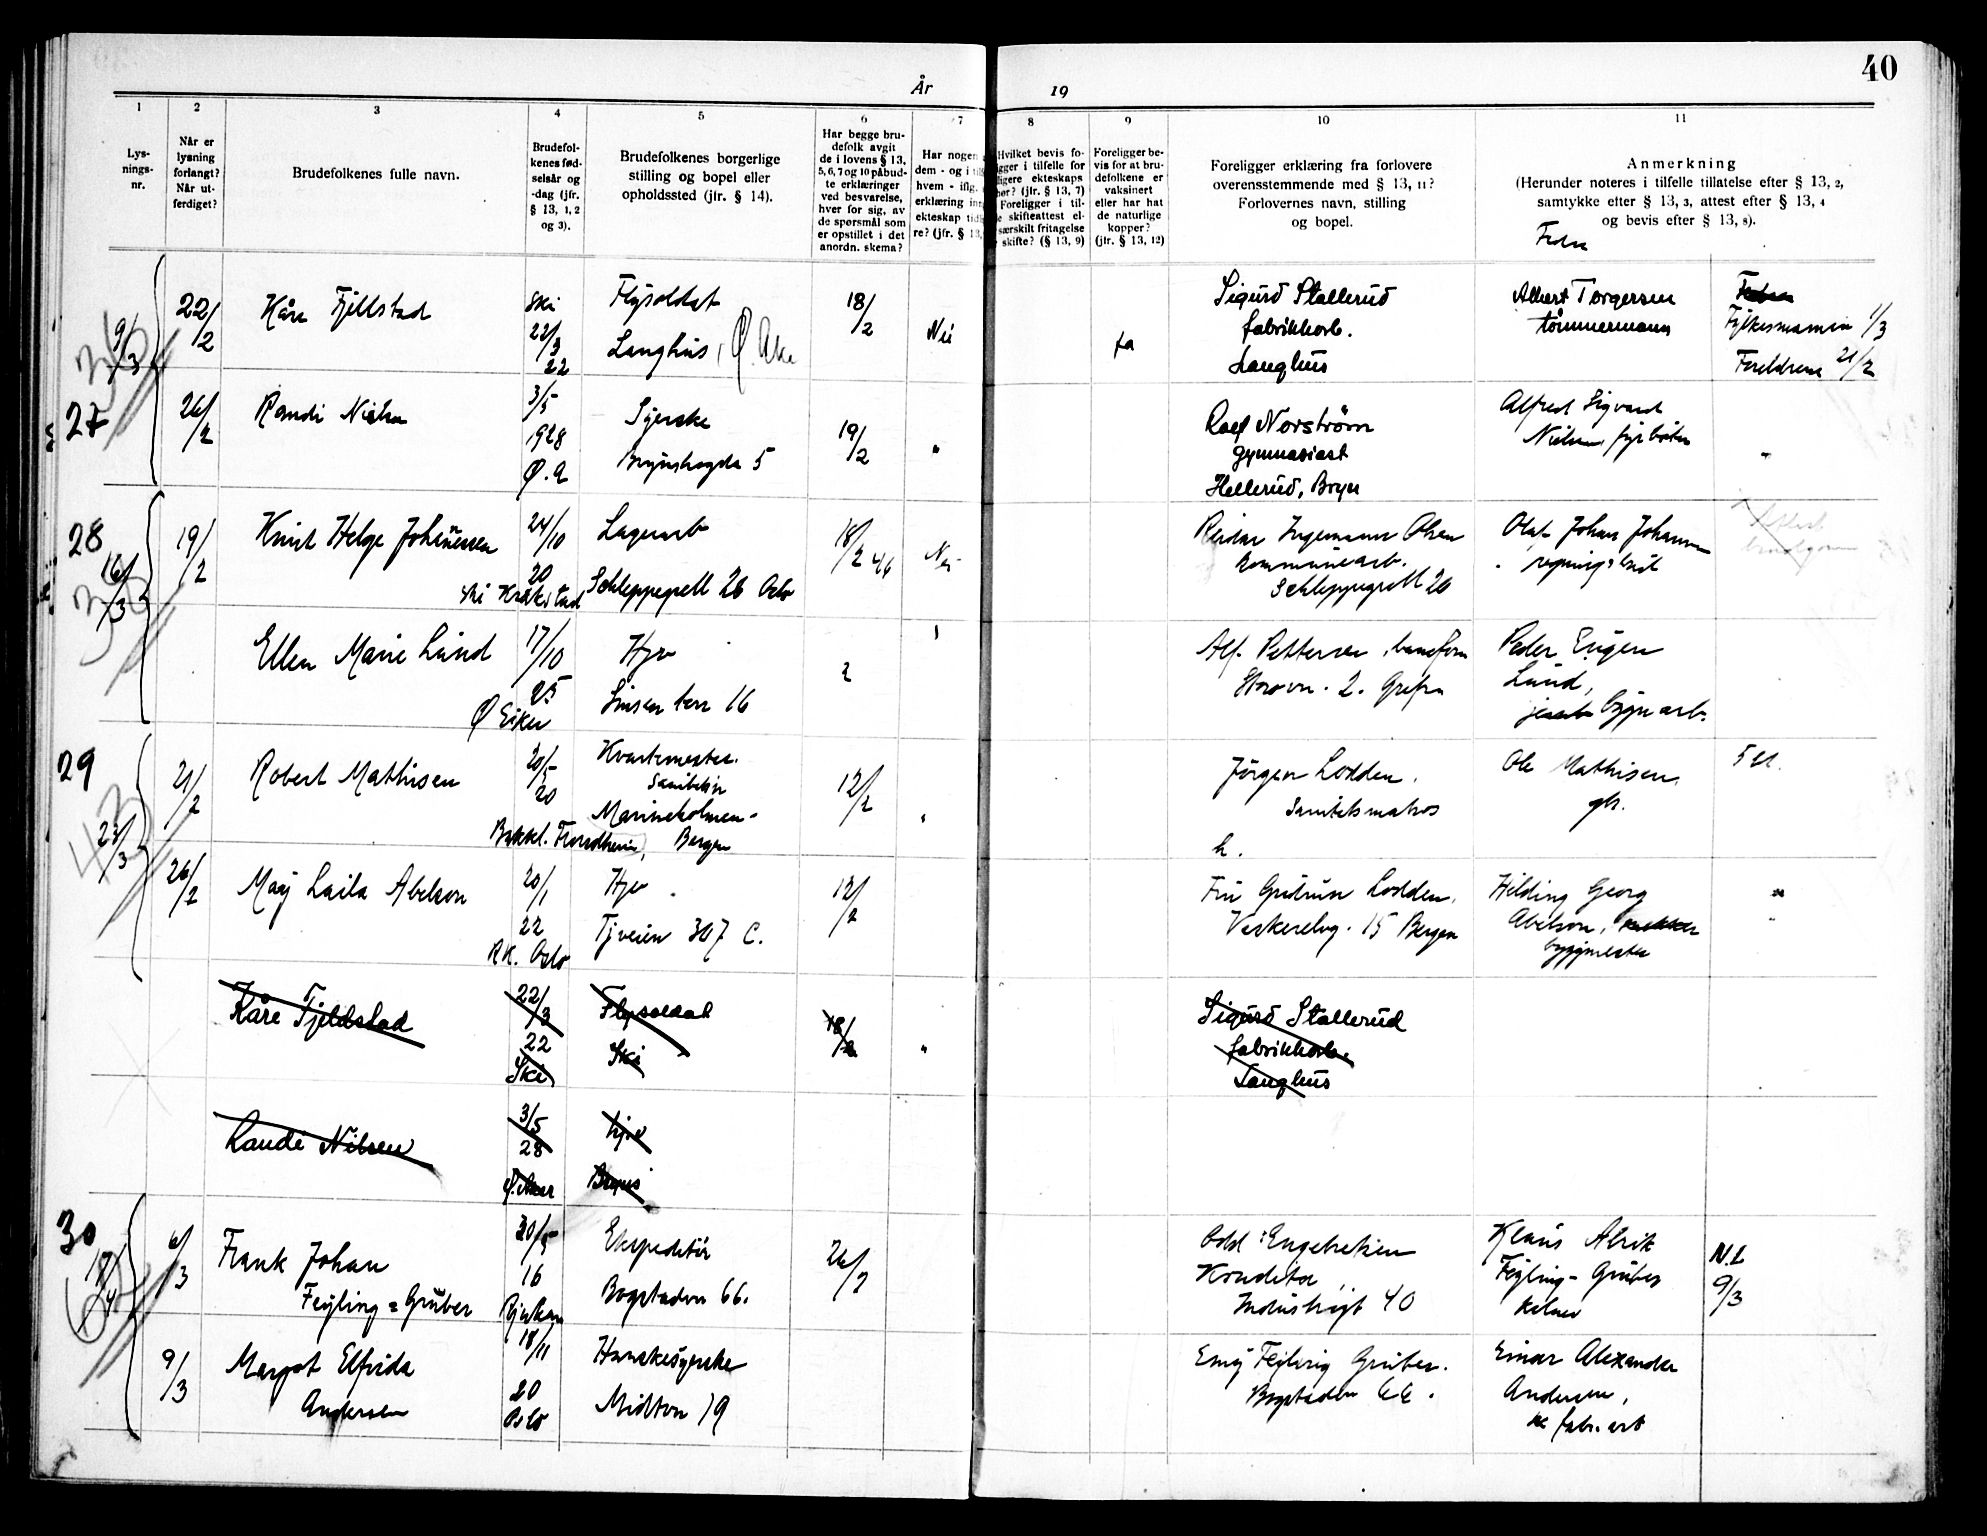 40
År
19
1
2
3
4
5
6
7
8
9
10
11
Lys-
nings-
nr.
Når er
lysning
forlangt?
Når ut-
ferdiget?
Brudefolkenes fulle navn.
Brudefol-
kenes fød-
selsår og
-dag (jfr.
§ 13, 1, 2
og 3).
Brudefolkenes borgerlige
stilling og bopel eller
opholdssted (jfr. § 14).
Har begge bru-
defolk avgit
de i lovens § 13,
5, 6, 7 og 10 påbud-
te erklæringer
ved besvarelse,
hver for sig, av
de spørsmål som
er opstillet i det
anordn. skema?
Har nogen
dem - og i
hvem - iflg.
erklæring
ekteskap
re? (jfr. § 13,
Hvilket bevis fo-
i tilfelle for
ekteskaps
(jfr. § 13, 7)
Foreligger i til-
skifteattest el-
særskilt fritagelse
skifte? (§ 13, 9)
Foreligger be-
vis for at bru-
defolkene er
vaksinert
eller har hat
de naturlige
kopper?
(jfr. § 13, 12)
Foreligger erklæring fra forlovere
overensstemmende med § 13, 11?
Forlovernes navn, stilling
og bopel.
Anmerkning
(Herunder noteres i tilfelle tillatelse efter § 13, 2,
samtykke efter § 13, 3, attest efter § 13, 4
og bevis efter § 13, 8).
27
9/3
22/2
Kåre Fjellstad
Ski
22/3
22
Flysoldat
Langhus, Ø. Ake
18/2
Nei
ja
Sigurd Stallerud
fabrikkarb.
Langhus
Albert Torgersen
tömmermann
Fylkesmannen 1/3
Foreldrene 21/2
26/2
Randi Nielsen
3/5
1928
Ø. A
Syerske
Brynshøgda 5
19/2
"
Roef Norström
gymnasiast
Hellerud, Bryn
Alfred Sigvard
Nielsen, fyrböter
"
28
16/3
19/2
Knut Helge Johannessen
24/10
20
Ski Kråkstad
Lagerarb
Schleppegrell 26 Oslo
18/2 46
Nei
Reidar Ingemann Olsen
kommunearb.
Schleppegrell 26
Olaf Johan Johannsen
regningsbud
Ellen Marie Lund
17/10
25
Ø Eiker
Hjv
Sinsen terr 16
2
Alf. Pettersen
Storovn. 2. Grefsn
Peder Eugen
Lund,
bygn arb.
29
23/3
21/2
Robert Mathisen
20/5
20
Bakkl. Trondheim,
Kvartermester.
Marineholmen -
Bergen
12/2
"
Jörgen Lodden.
Sanitetsmatros
h.
Ole Mathisen.
gb.
26/2
Maj Laila Abelson
20/1
22
RK. Oslo
Hjv
Tjveien 307 C.
12/2
Fru Gudrun Lodden.
15 Bergen
Hilding Georg
Abelson,
byggmester
"
Kåre Fjeldstad
22/3
22
Ski
Flysoldat
Ski
18/2
"
Sigurd Stallerud
fabrikkarb.
Langhus
Randi Nilsen
3/5
28
Ø. Aker
Hjv
Bryn
30
6/3
Frank Johan
Feyling = Grüber
20/5
16
Rjukan
Ekspeditör
Bogstadvn 66.
26/2
Odd Engebretsen
Konditor,
Industrigt 40
Klaus Alrik
Feyling - Grüber
kelner
N.L
9/3
9/3
Margot Elfrida
Andersen
18/11
20
Oslo
Hanskesyerske
Midtvn 19
Emy Feyling Gruber.
Bogstadvn 66.
Einar Alexander
Andersen,
fabr. arb